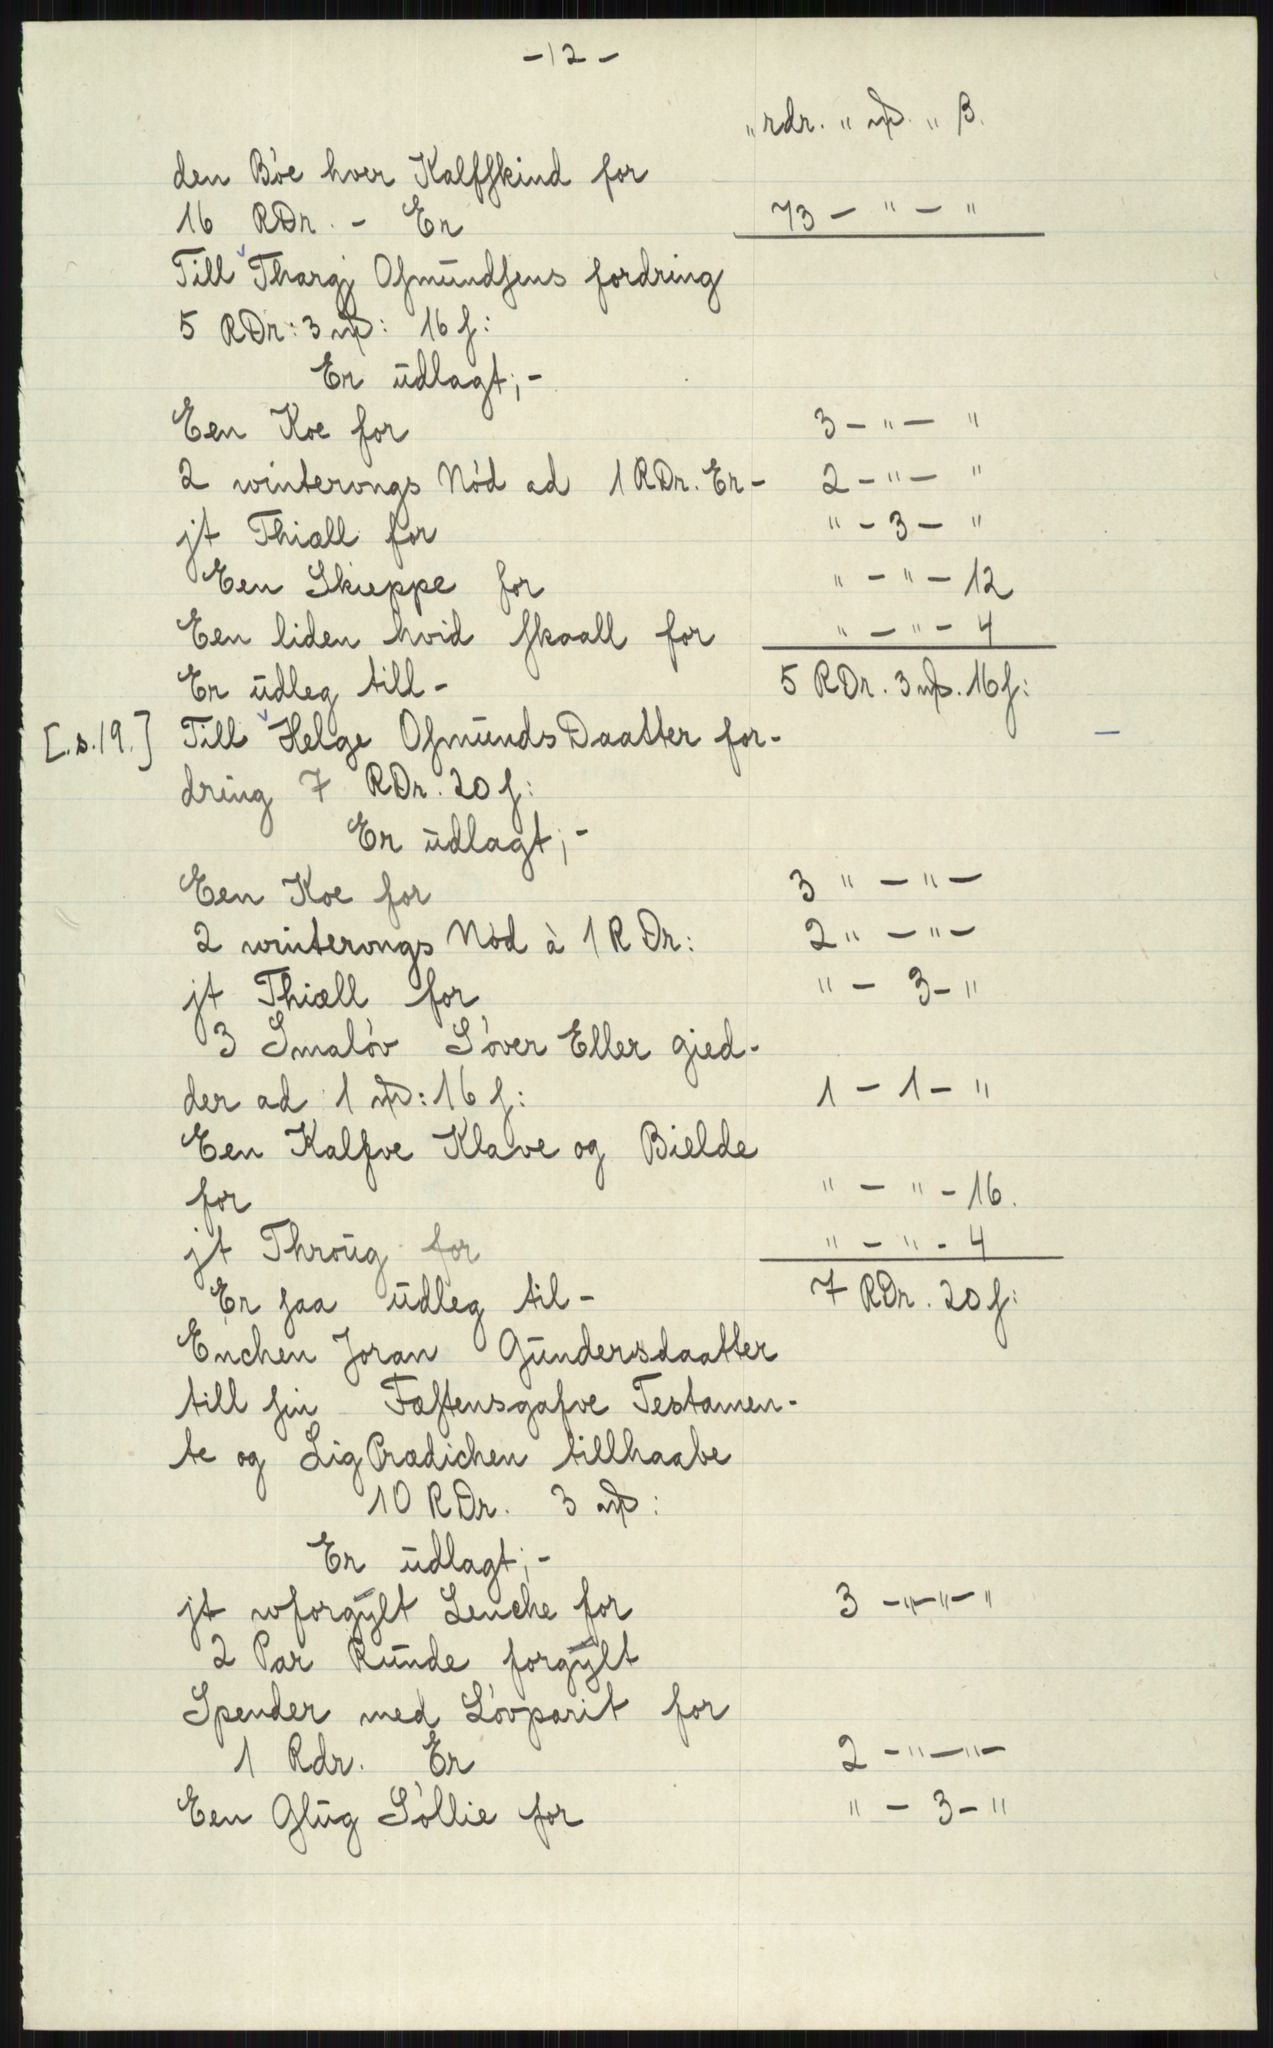 -12-
" rdr. " mƿ. " β.
den Bòe hver Kalfskind for
16 RDr. - Er 73 - " - "
Till Thargj Osmūndsens fordring
5 RDr: 3 mƿ: 16 ſ:
Er ūdlagt; -
Een Koe for 3 - " - "
2 winterongs Nòd ad 1 RDr. Er - 2 - " - "
jt Thiæll for " - 3 - "
Een Skieppe for " - " - 12
Een liden hvid skaall for " - " - 4
Er ūdleg till - 5 RDr. 3 mƿ. 16 ſ:
[s.19.] Till Helge Osmūnds Daatter for-
dring 7 RDr. 20 ſ:
Er ūdlagt; -
Een Koe for 3 " - " -
2 winterongs Nòd à 1 R Dr: 2 " - " -
jt Thiæll for " - 3 - "
3 Smalòv Sòver Eller gied-
der ad 1 mƿ: 16 ſ: 1 - 1 - "
Een Kalfve Klave og Bielde
for " - " - 16.
jt Throūg for " - " - 4
Er saa ūdleg til - 7 RDr. 20 ſ:
Enchen Joran Gūndersdaatter
till sin Fæstensgafve Testamen-
te og Lig Prædichen tillhaabe
10 RDr. 3 mƿ:
Er ūdlagt; -
jt uforgÿlt Lenche for 3 - " - " - "
2 Par Rūnde forgÿlt
Spender med Lòvparit for
1 Rdr. Er 2 - " - " -
Een Glūg Sòllie for " - 3 - "